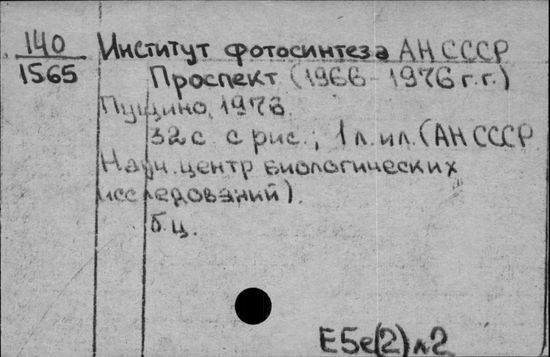 140
1565
Институт фотосинтеза АН СССР
Проспект (1966-1976 г.г.)
Пущино, 1976.
32 с. с рис., 1 л. ил. (АН СССР
Науч. центр биологических
исследований).
б.ц.
Е5е(2)л2